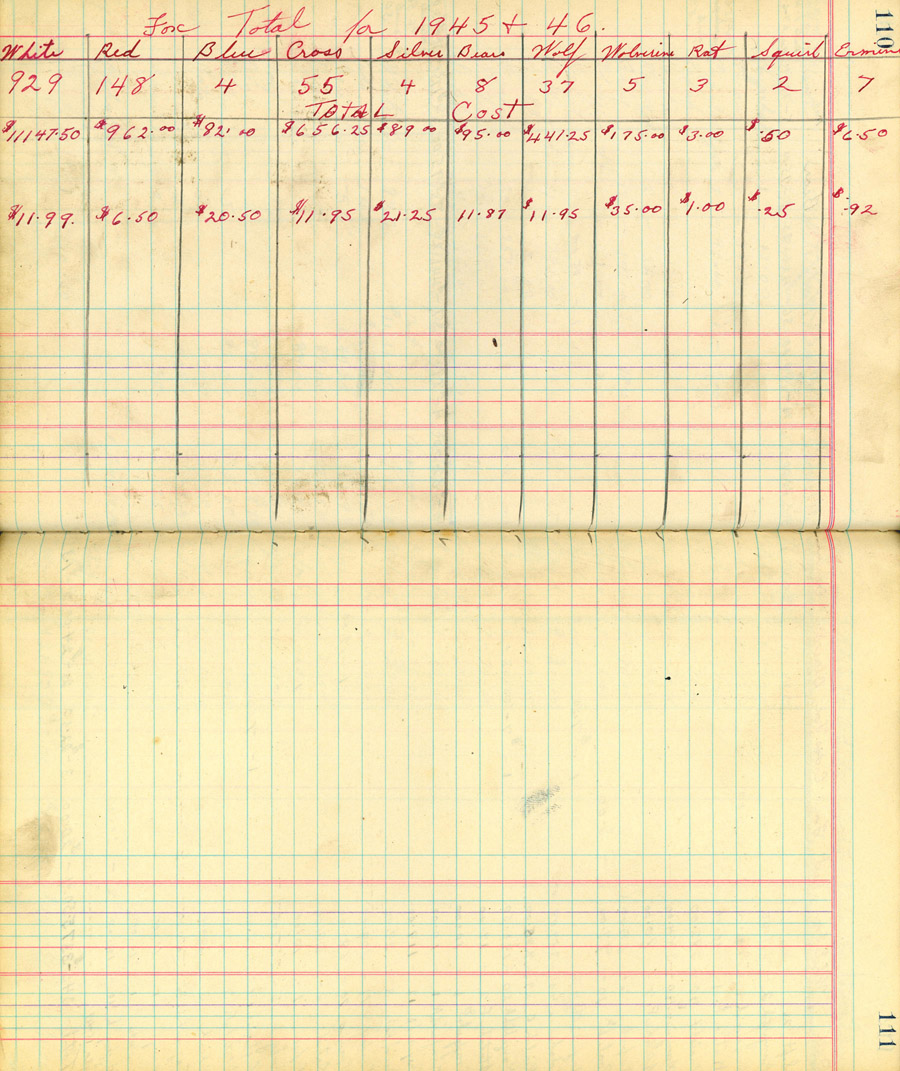 Fox Total for 1945 + 46. 110
White Red Blue Cross Silver Bears Wolf Wolverine Rat Squirl Ermine
929 148 4 55 4 8 37 5 3 2 7
TOTAL Cost
$11147.50 $962.00 $82.00 $656.25 $89.00 $95.00 $441.25 $175.00 $3.00 $.50 $6.50
$11.99. $6.50 $20.50 $11.95 $21.25 11.87 $11.95 $35.00 $1.00 $.25 $.92
111